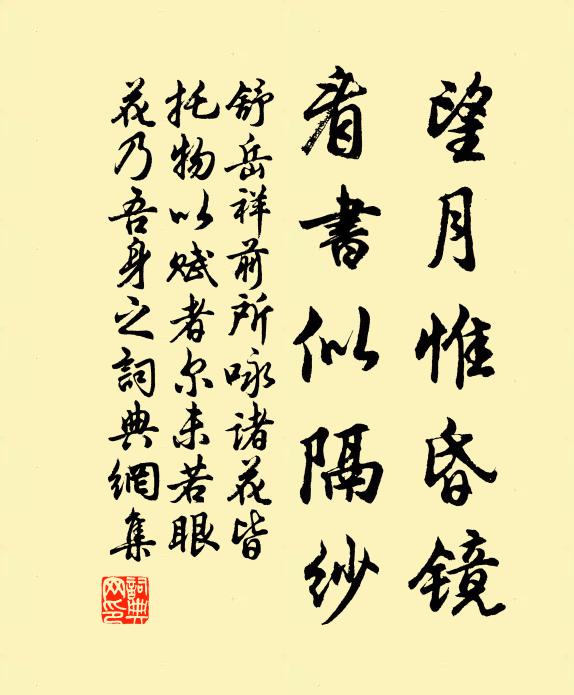 望月惟昏镜
看書似隔紗
舒岳祥前所咏诸花皆
托物以赋者尔未若眼
花乃吾身之詞典網集
詞典網印